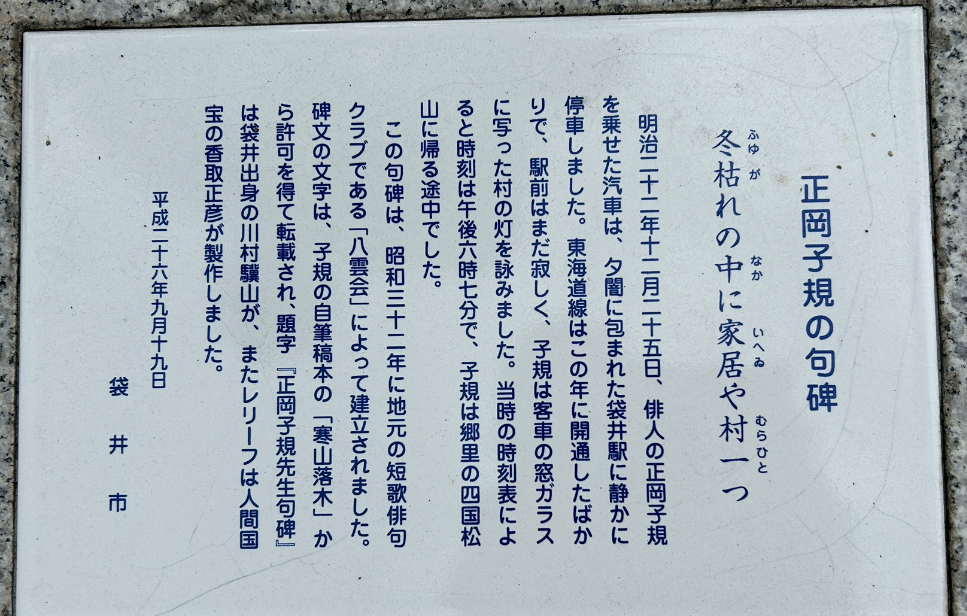 正岡子規の句碑
冬枯れの中に家居や村一つ
ふゆ が なか いへゐ むらひと
明治二十二年十二月二十五日、俳人の正岡子規
を乗せた汽車は、夕闇に包まれた袋井駅に静かに
停車しました。東海道線はこの年に開通したばか
りで、駅前はまだ寂しく、子規は客車の窓ガラス
に写った村の灯を詠みました。当時の時刻表によ
ると時刻は午後六時七分で、子規は郷里の四国松
山に帰る途中でした。
この句碑は、昭和三十二年に地元の短歌俳句
クラブである「八雲会」によって建立されました。
碑文の文字は、子規の自筆稿本の「寒山落木」か
ら許可を得て転載され、題字『正岡子規先生句碑』
は袋井出身の川村驥山が、またレリーフは人間国
宝の香取正彦が製作しました。
平成二十六年九月十九日
袋井市